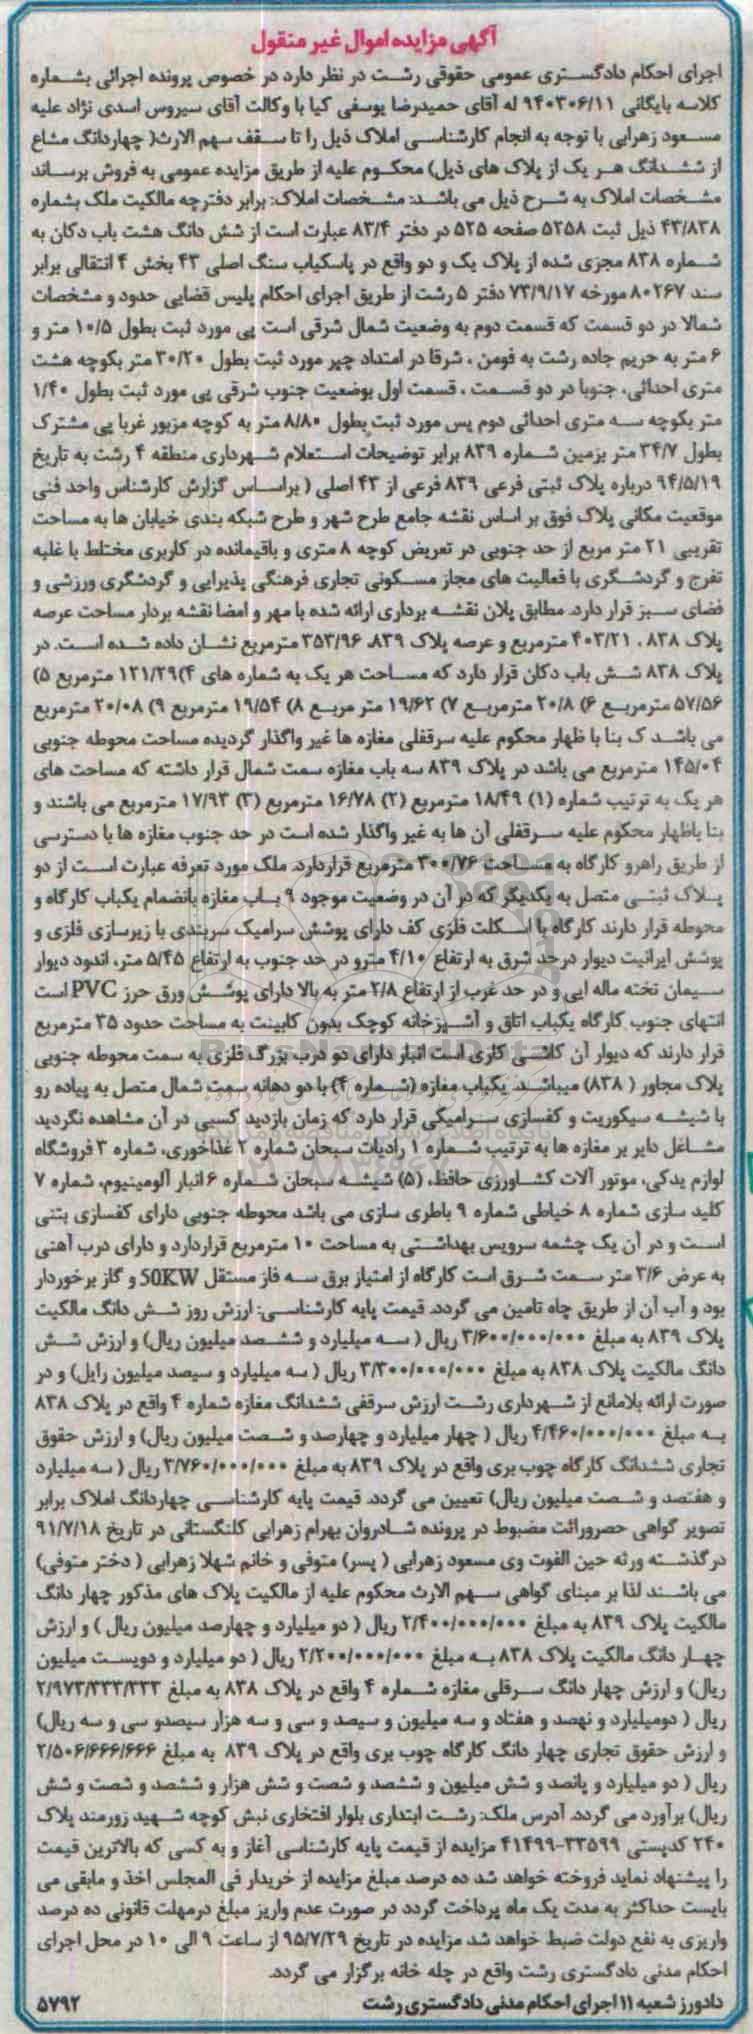 آگهی مزایده اموال غیر منقول
اجرای احکام دادگستری عمومی حقوقی رشت در نظر دارد در خصوص پرونده اجرائی بشماره
کلاسه بایگانی ۹۴۰۳۰۶/۱۱ له آقای حمیدرضا یوسفی کیا با وکالت آقای سیروس اسدی نژاد علیه
مسعود زهرایی با توجه به انجام کارشناسی املاک ذیل را تا سقف سهم الارث( چهاردانگ مشاع
از ششدانگ هر یک از پلاک های ذیل) محکوم علیه از طریق مزایده عمومی به فروش برساند
مشخصات املاک به شرح ذیل می باشد: مشخصات املاک: برابر دفترچه مالکیت ملک بشماره
۴۳/۸۳۸ ذیل ثبت ۵۲۵۸ صفحه ۵۲۵ در دفتر ۸۳/۴ عبارت است از شش دانگ هشت باب دکان به
شماره ۸۳۸ مجزی شده از پلاک یک و دو واقع در پاسکیاب سنگ اصلی ۴۳ بخش ۴ انتقالی برابر
سند ۸۰۲۶۷ مورخه ۷۳/۹/۱۷ دفتر ۵ رشت از طریق اجرای احکام پلیس قضایی حدود و مشخصات
شمالا در دو قسمت که قسمت دوم به وضعیت شمال شرقی است پی مورد ثبت بطول ۱۰/۵ متر و
۶ متر به حریم جاده رشت به فومن ، شرقا در امتداد چپر مورد ثبت بطول ۳۰/۲۰ متر بکوچه هشت
متری احداثی، جنوبا در دو قسمت ، قسمت اول بوضعیت جنوب شرقی پی مورد ثبت بطول ۱/۴۰
متر بکوچه سه متری احداثی دوم پس مورد ثبت بطول ۸/۸۰ متر به کوچه مزبور غربا پی مشترک
بطول ۳۴/۷ متر بزمین شماره ۸۳۹ برابر توضیحات استعلام شهرداری منطقه ۴ رشت به تاریخ
۹۴/۵/۱۹ درباره پلاک ثبتی فرعی ۸۳۹ فرعی از ۴۳ اصلی ( براساس گزارش کارشناس واحد فنی
موقعیت مکانی پلاک فوق بر اساس نقشه جامع طرح شهر و طرح شبکه بندی خیابان ها به مساحت
تقریبی ۲۱ متر مربع از حد جنوبی در تعریض کوچه ۸ متری و باقیمانده در کاربری مختلط با غلبه
تفرج و گردشگری با فعالیت های مجاز مسکونی تجاری فرهنگی پذیرایی و گردشگری ورزشی و
فضای سبز قرار دارد. مطابق پلان نقشه برداری ارائه شده با مهر و امضا نقشه بردار مساحت عرصه
پلاک ۸۳۸ ، ۴۰۳/۲۱ مترمربع و عرصه پلاک ۸۳۹، ۳۵۳/۹۶ مترمربع نشان داده شده است. در
پلاک ۸۳۸ شش باب دکان قرار دارد که مساحت هر یک به شماره های ۴)۱۲۱/۲۹ مترمربع ۵)
۵۷/۵۶ مترمربع ۶) ۲۰/۸ مترمربع ۷) ۱۹/۶۲ متر مربع ۸) ۱۹/۵۴ مترمربع ۹) ۲۰/۰۸ مترمربع
می باشد ک بنا با ظهار محکوم علیه سرقفلی مغازه ها غیر واگذار گردیده مساحت محوطه جنوبی
۱۴۵/۰۴ مترمربع می باشد در پلاک ۸۳۹ سه باب مغازه سمت شمال قرار داشته که مساحت های
هر یک به ترتیب شماره (۱) ۱۸/۴۹ مترمربع (۲) ۱۶/۷۸ مترمربع (۳) ۱۷/۹۳ مترمربع می باشند و
بنا باظهار محکوم علیه سرقفلی آن ها به غیر واگذار شده است در حد جنوب مغازه ها با دسترسی
از طریق راهرو کارگاه به مساحت ۳۰۰/۷۶ مترمربع قراردارد. ملک مورد تعرفه عبارت است از دو
پلاک ثبتی متصل به یکدیگر که در آن در وضعیت موجود ۹ باب مغازه بانضمام یکباب کارگاه و
محوطه قرار دارند کارگاه با اسکلت فلزی کف دارای پوشش سرامیک سربندی با زیرسازی فلزی و
پوشش ایرانیت دیوار درحد شرق به ارتفاع ۴/۱۰ مترو در حد جنوب به ارتفاع ۵/۴۵ متر، اندود دیوار
سیمان تخته ماله ایی و در حد غرب از ارتفاع ۲/۸ متر به بالا دارای پوشش ورق حرز PVC است
انتهای جنوب کارگاه یکباب اتاق و آشپزخانه کوچک بدون کابینت به مساحت حدود ۳۵ مترمربع
قرار دارند که دیوار آن کاشی کاری است انبار دارای دو درب بزرگ فلزی به سمت محوطه جنوبی
پلاک مجاور ( ۸۳۸) میباشد. یکباب مغازه (شماره ۴) با دو دهانه سمت شمال متصل به پیاده رو
با شیشه سیکوریت و کفسازی سرامیکی قرار دارد که زمان بازدید کسبی در آن مشاهده نگردید
مشاغل دایر بر مغازه ها به ترتیب شماره ۱ رادیات سبحان شماره ۲ غذاخوری، شماره ۳ فروشگاه
لوازم یدکی، موتور آلات کشاورزی حافظ، (۵) شیشه سبحان شماره ۶ انبار آلومینیوم، شماره ۷
کلید سازی شماره ۸ خیاطی شماره ۹ باطری سازی می باشد محوطه جنوبی دارای کفسازی بتنی
است و در آن یک چشمه سرویس بهداشتی به مساحت ۱۰ مترمربع قراردارد و دارای درب آهنی
به عرض ۳/۶ متر سمت شرق است کارگاه از امتیاز برق سه فاز مستقل 50KW و گاز برخوردار
بود و آب آن از طریق چاه تامین می گردد. قیمت پایه کارشناسی: ارزش روز شش دانگ مالکیت
پلاک ۸۳۹ به مبلغ ۳/۶۰۰/۰۰۰/۰۰۰ ریال ( سه میلیارد و ششصد میلیون ریال) و ارزش شش
دانگ مالکیت پلاک ۸۳۸ به مبلغ ۳/۳۰۰/۰۰۰/۰۰۰ ریال ( سه میلیارد و سیصد میلیون رایل) و در
صورت ارائه بلامانع از شهرداری رشت ارزش سرقفی ششدانگ مغازه شماره ۴ واقع در پلاک ۸۳۸
به مبلغ ۴/۴۶۰/۰۰۰/۰۰۰ ریال ( چهار میلیارد و چهارصد و شصت میلیون ریال) و ارزش حقوق
تجاری ششدانگ کارگاه چوب بری واقع در پلاک ۸۳۹ به مبلغ ۳/۷۶۰/۰۰۰/۰۰۰ ریال ( سه میلیارد
و هفتصد و شصت میلیون ریال) تعیین می گردد. قیمت پایه کارشناسی چهاردانگ املاک برابر
تصویر گواهی حصروراثت مضبوط در پرونده شادروان بهرام زهرایی کلنگستانی در تاریخ ۹۱/۷/۱۸
درگذشته ورثه حین الفوت وی مسعود زهرایی ( پسر) متوفی و خانم شهلا زهرایی ( دختر متوفی)
می باشند لذا بر مبنای گواهی سهم الارث محکوم علیه از مالکیت پلاک های مذکور چهار دانگ
مالکیت پلاک ۸۳۹ به مبلغ ۲/۴۰۰/۰۰۰/۰۰۰ ریال ( دو میلیارد و چهارصد میلیون ریال ) و ارزش
چهار دانگ مالکیت پلاک ۸۳۸ به مبلغ ۲/۲۰۰/۰۰۰/۰۰۰ ریال ( دو میلیارد و دویست میلیون
ریال) و ارزش چهار دانگ سرقلی مغازه شماره ۴ واقع در پلاک ۸۳۸ به مبلغ ۲/۹۷۳/۳۳۳/۳۳۳
ریال ( دومیلیارد و نهصد و هفتاد و سه میلیون و سیصد و سی و سه هزار سیصدو سی و سه ریال)
و ارزش حقوق تجاری چهار دانگ کارگاه چوب بری واقع در پلاک ۸۳۹ به مبلغ ۲/۵۰۶/۶۶۶/۶۶۶
ریال ( دو میلیارد و پانصد و شش میلیون و ششصد و شصت و شش هزار و ششصد و شصت و شش
ریال) برآورد می گردد. آدرس ملک: رشت ابتداری بلوار افتخاری نبش کوچه شهید زورمند پلاک
۲۴۰ کدپستی ۳۳۵۹۹-۴۱۴۹۹ مزایده از قیمت پایه کارشناسی آغاز و به کسی که بالاترین قیمت
را پیشنهاد نماید فروخته خواهد شد ده درصد مبلغ مزایده از خریدار فی المجلس اخذ و مابقی می
بایست حداکثر به مدت یک ماه پرداخت گردد در صورت عدم واریز مبلغ درمهلت قانونی ده درصد
واریزی به نفع دولت ضبط خواهد شد مزایده در تاریخ ۹۵/۷/۲۹ از ساعت ۹ الی ۱۰ در محل اجرای
احکام مدنی دادگستری رشت واقع در چله خانه برگزار می گردد.
دادورز شعبه ۱۱ اجرای احکام مدنی دادگستری رشت ۵۷۹۲